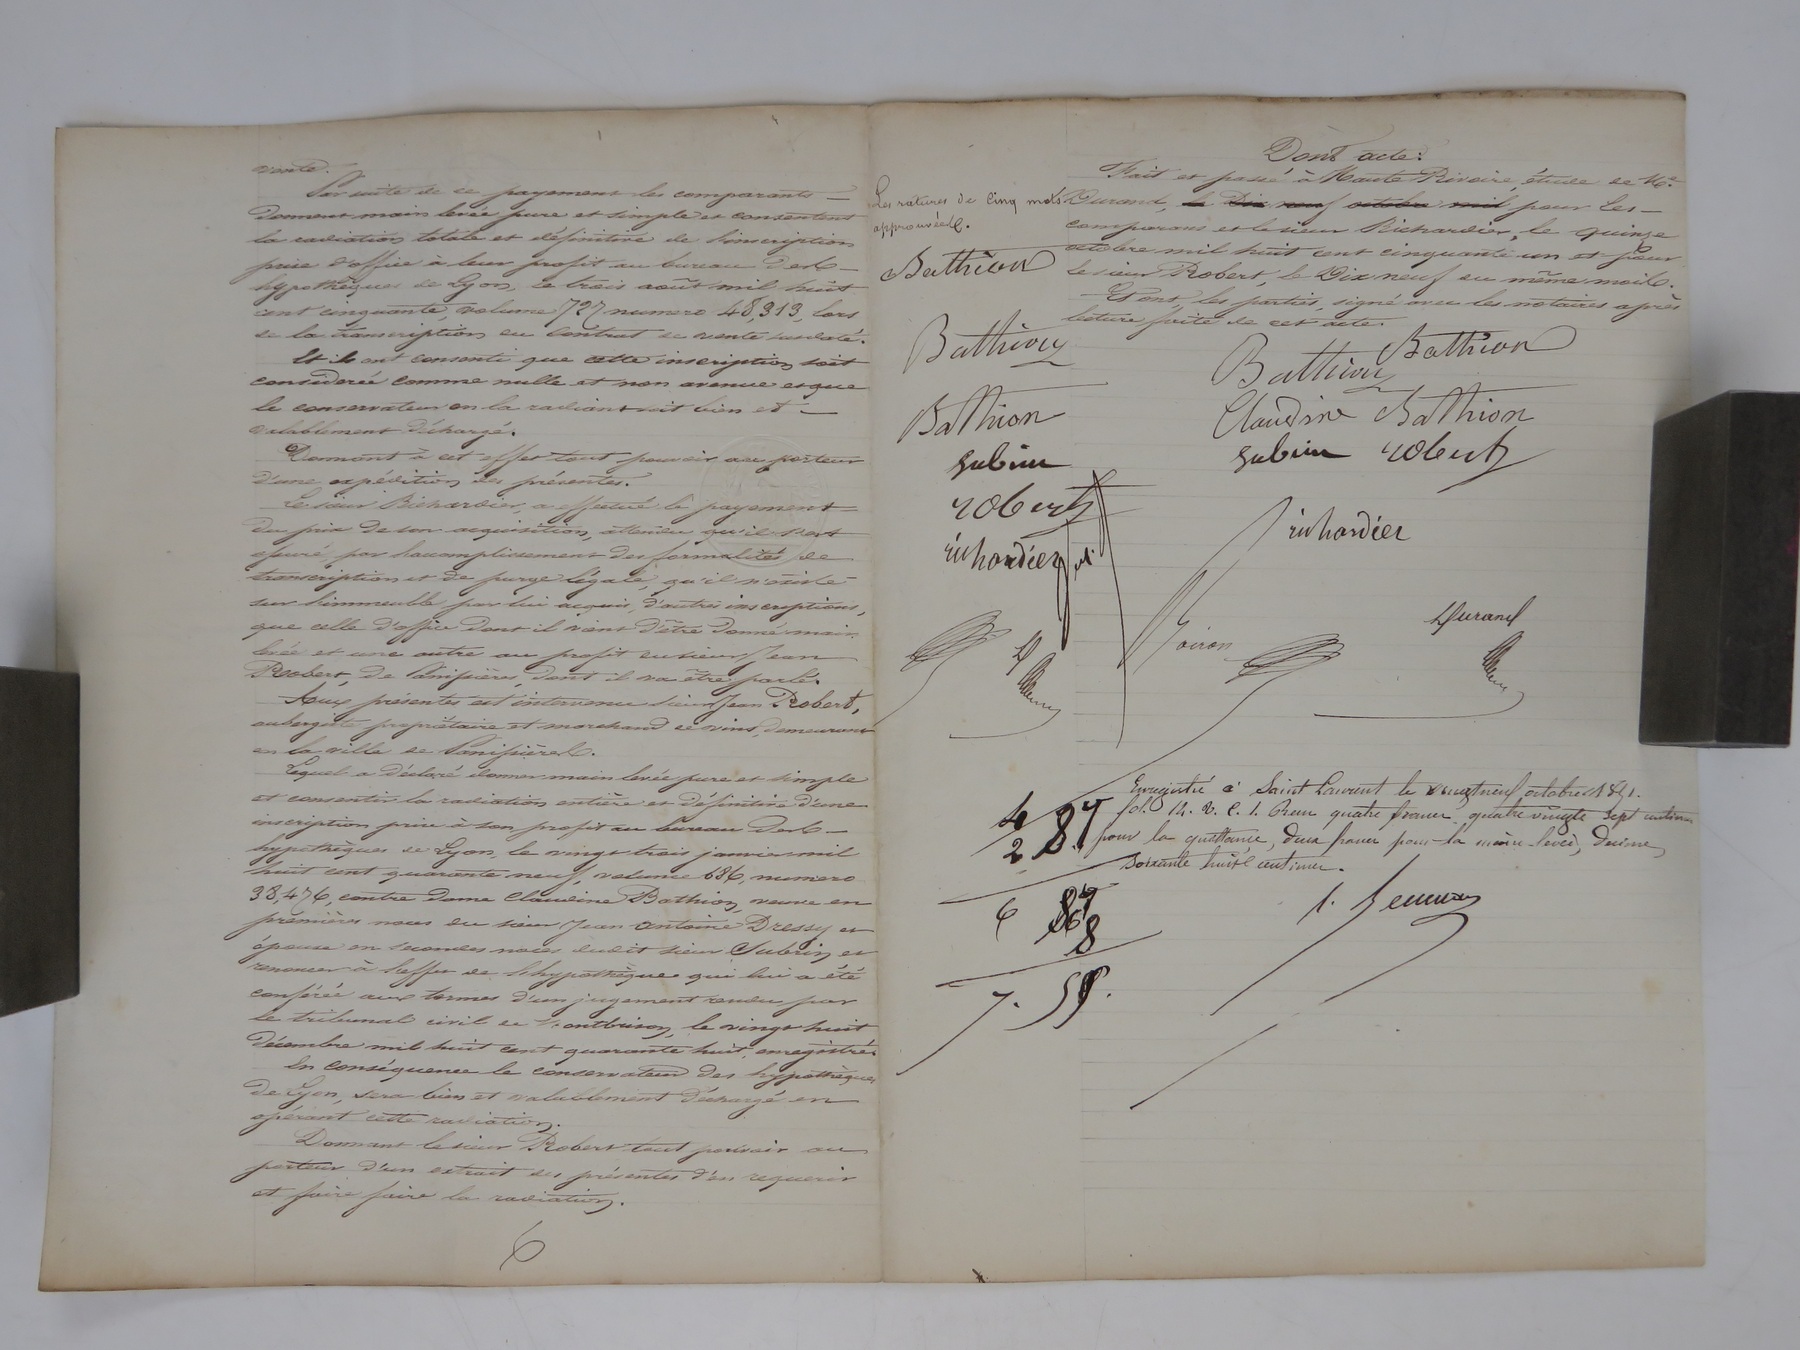 vente.
Par suite de ce payement les comparants
donnent main levée pure et simple et consentent
la radiation totale et définitive de l'inscription
prise d'office à leur profit au bureau des
hypothèques de Lyon, le trois août mil huit
cent cinquante, volume 727 numero 48,313, lors
de la transcription du contrat de vente susdaté.
Et ils ont consenti que cette inscription soit
considérée comme nulle et non avenue et que
le conservateur en la radiant soit bien et
valablement déchargé.
Donnant à cet effet tout pouvoir au porteur
d'une expédition des présentes.
Le sieur Richardier, a effectué le payement
du prix de son acquisition, attendu qu'il s'est
assuré, par l'accomplissement des formalités de
transcription et de purge légale, qu'il n'existe
sur l'immeuble par lui acquis, d'autres inscriptions,
que celle d'office dont il vient d'être donné main
levée et une autre au profit du sieur Jean
Robert, de Panissières, dont il va être parlé.
Aux présentes est intervenu sieur Jean Robert,
aubergiste propriétaire et marchand de vins, demeurant
en la ville de Panissières.
Lequel a déclaré donner main levée pure et simple
et consentir la radiation entière et définitive d'une
inscription prise à son profit au bureau des
hypothèques de Lyon, le vingt trois janvier mil
huit cent quarante neuf, volume 686, numero
38,476, contre dame Claudine Bathion, veuve en
premières noces du sieur Jean Antoine Dressy et
épouse en secondes noces dudit sieur Subrin et
renoncer à l'effet de l'hypothèque qui lui a été
conférée aux termes d'un jugement rendu par
le tribunal civil de Montbrison, le vingt huit
décembre mil huit cent quarante huit, enregistré.
En conséquence le conservateur des hypothèques
de Lyon, sera bien et valablement déchargé en
opérant cette radiation.
Donnant le sieur Robert tout pouvoir au
porteur d'un extrait des présentes d'en requérir
et faire faire la radiation.
Dont acte:
Fait et passé à Haute Rivoire, étude de Me
Durand, le Dix neuf octobre mil pour les
comparans et le sieur Richardier, le quinze
octobre mil huit cent cinquante un et pour
le sieur Robert, le Dix neuf du même mois.
Et ont, les parties, signé avec les notaires après
lecture faite de cet acte.
Les ratures de cinq mots
approuvées.
Bathion
Bathion
Bathion
Subrin
robert
richardier
D
Bathion
Bathion
Claudine Bathion
Subrin robert
richardier
Durand
Enregistré à Saint Laurent le vingt neuf octobre 1851.
fol. 14. v. c. 1. Reçu quatre francs quatre vingt sept centimes
pour la quittance, deux francs pour la main-levée, décime,
soixante huit centimes.
4 87
2
6 87
68
7. 55.